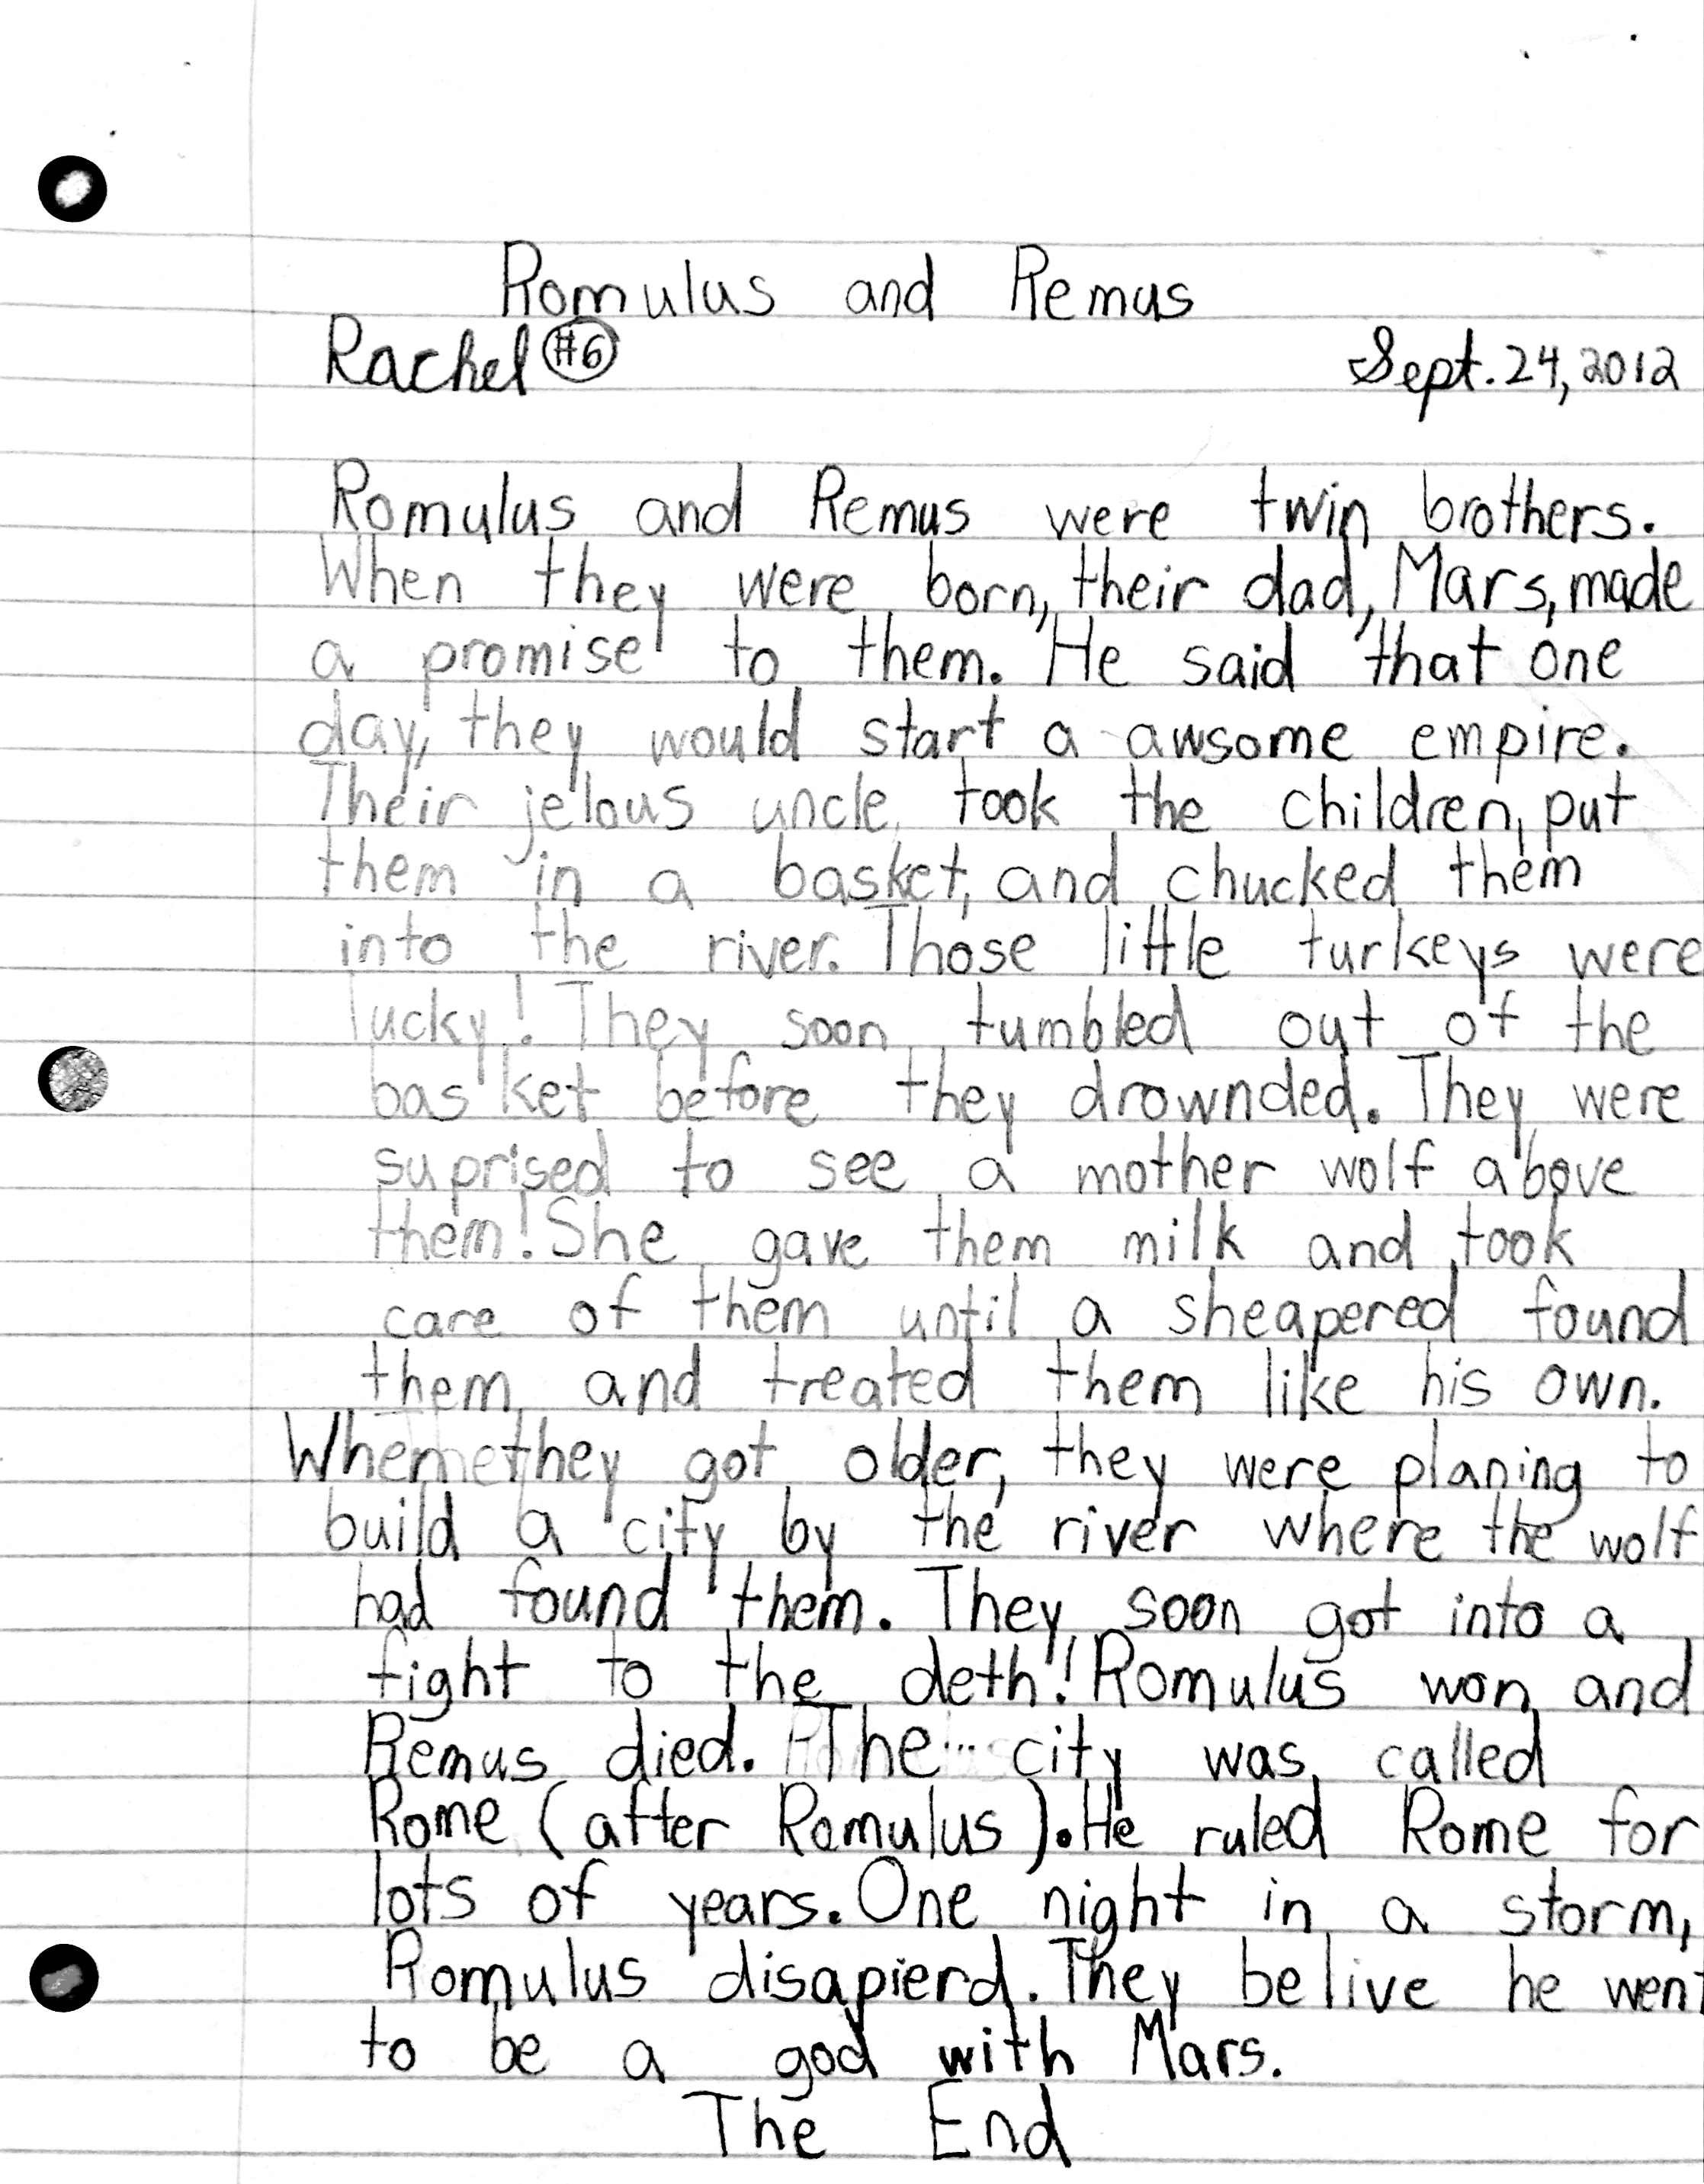 Romulus and Remus
Rachel #6 Sept. 24, 2012
Romulus and Remus were twin brothers.
When they were born, their dad, Mars, made
a promise to them. He said that one
day, they would start a awsome empire.
Their jelous uncle took the children, put
them in a basket, and chucked them
into the river. Those little turkeys were
lucky! They soon tumbled out of the
basket before they drownded. They were
suprised to see a mother wolf above
them! She gave them milk and took
care of them until a sheapered found
them and treated them like his own.
When they got older, they were planing to
build a city by the river where the wolf
had found them. They soon got into a
fight to the deth! Romulus won and
Remus died. The city was called
Rome (after Romulus). He ruled Rome for
lots of years. One night in a storm,
Romulus disapierd. They belive he went
to be a god with Mars.
The End